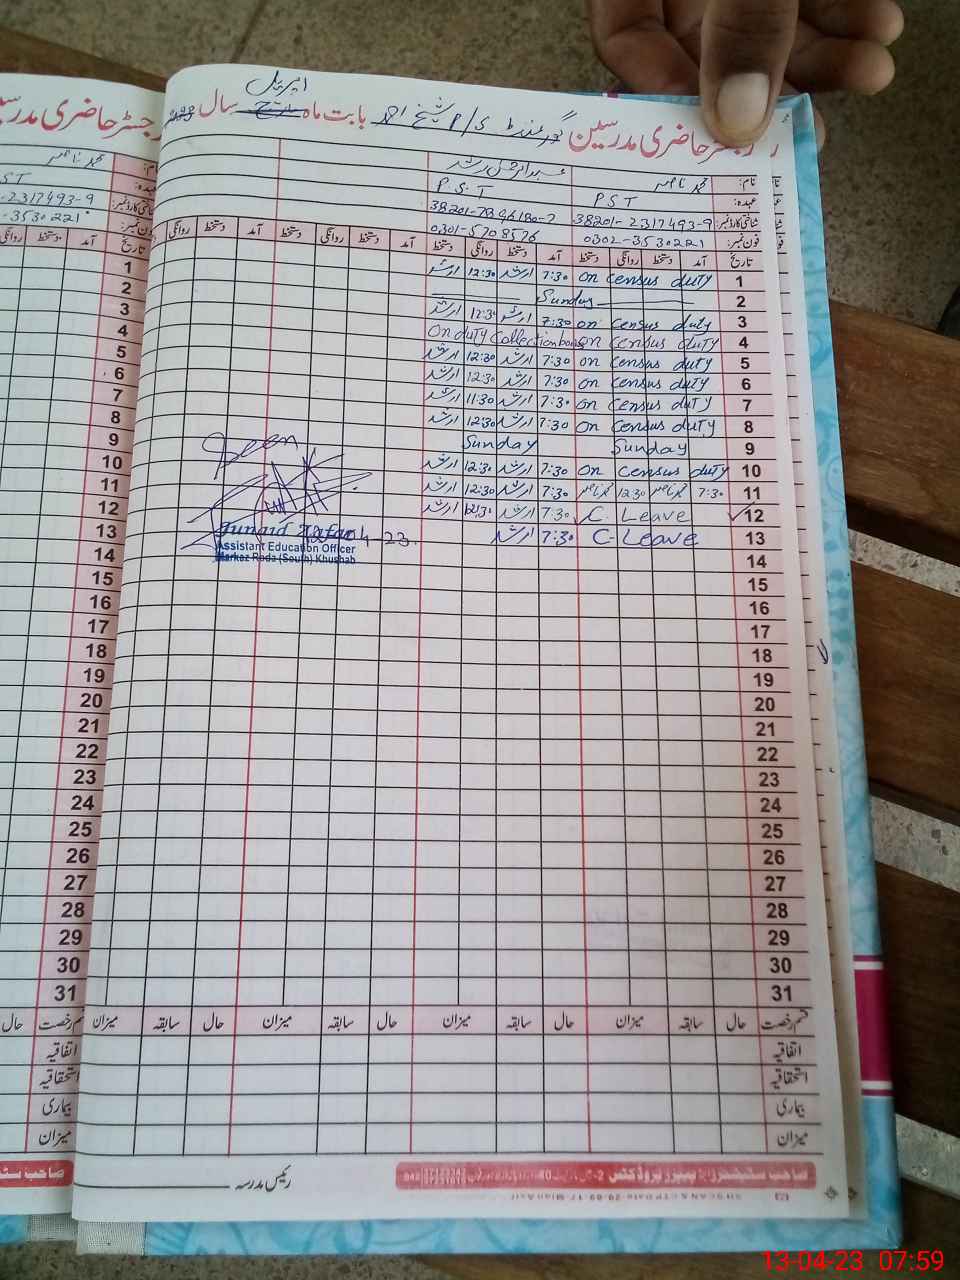 رجسٹر حاضری مدرسین گورنمنٹ P/S شیخ احمد بابت ماہ اپریل سال
نام: محمد ناصر
عہدہ: PST P.S.T
شناختی کارڈ نمبر: 38201-2317493-9
فون نمبر: 0302-3530221 0301-5708576
تاریخ آمد دستخط روانگی دستخط آمد دستخط روانگی دستخط آمد دستخط روانگی دستخط آمد دستخط روانگی
1 on census duty 7:30 ارشد 12:30 ارشد
2 Sunday
3 on census duty 7:30 ارشد 12:30 ارشد
4 on census duty On duty Collection
5 on census duty 7:30 ارشد 12:30 ارشد
6 on census duty 7:30 ارشد 12:30 ارشد
7 on census duty 7:30 ارشد 11:30 ارشد
8 on census duty 7:30 ارشد 12:30 ارشد
9 Sunday Sunday
10 on census duty 7:30 ارشد 12:30 ارشد
11 7:30 محمد ناصر 12:30 محمد ناصر 7:30 ارشد 12:30 ارشد
12 C. Leave 7:30 ارشد 12:30 ارشد
13 C-Leave 7:30 ارشد
14
15
16
17
18
19
20
21
22
23
24
25
26
27
28
29
30
31
Seen
Junaid Zafar
Assistant Education Officer
Markez Roda (South) Khushab
قسم رخصت حال سابقہ میزان حال سابقہ میزان حال سابقہ میزان حال سابقہ میزان
اتفاقیہ
استحقاقیہ
بیماری
میزان
رئیس مدرسہ
جسٹر حاضری مدرسین
نام: محمد ناصر
عہدہ: ST
شناختی کارڈ نمبر: -2317493-9
فون نمبر: -3530221
تاریخ آمد دستخط روانگی
1
2
3
4
5
6
7
8
9
10
11
12
13
14
15
16
17
18
19
20
21
22
23
24
25
26
27
28
29
30
31
قسم رخصت حال
اتفاقیہ
استحقاقیہ
بیماری
میزان
13-04-23 07:59